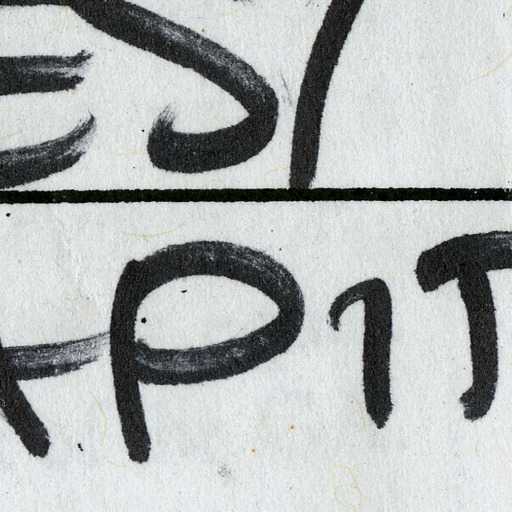 ES
APIT